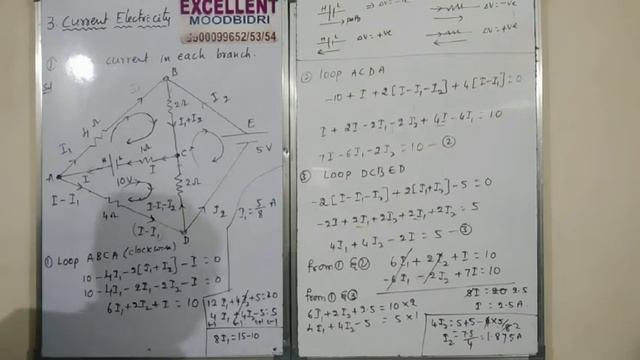 3. Current Electricity
EXCELLENT
MOODBIDRI
9900099652/53/54
① current in each branch.
B
2Ω
I₂
4Ω
I₁+I₂
E
I₁
1Ω
C
5V
A
I
I
10V
2Ω
I-I₁
I-I₁-I₂
I₂
4Ω
(I-I₁)
D
I₁ = 5/8 A
① Loop ABCA (clockwise)
10-4I₁-2[I₁+I₂]-I = 0
10-4I₁-2I₁-2I₂-I = 0
6I₁+2I₂+I = 10
12I₁+4I₂+5=20
4I₁+4I₂-5=5
8I₁=15-10
⇒ ΔV=-ve
ΔV=-ve
ΔV=+ve
ΔV=+ve
② loop ACDA
-10+I+2[I-I₁-I₂]+4[I-I₁]=0
I+2I-2I₁-2I₂+4I-4I₁=10
7I-6I₁-2I₂=10-②
③ LOOP DCBED
-2[I-I₁-I₂]+2[I₁+I₂]-5=0
-2I+2I₁+2I₂+2I₁+2I₂=5
4I₁+4I₂-2I=5-③
from ① & ② 6I₁+2I₂+I=10
-6I₁-2I₂+7I=10
8I=20 2.5
I=2.5A.
from ① & ③
6I₁+2I₂+2.5=10×2
4I₁+4I₂-5=5×1